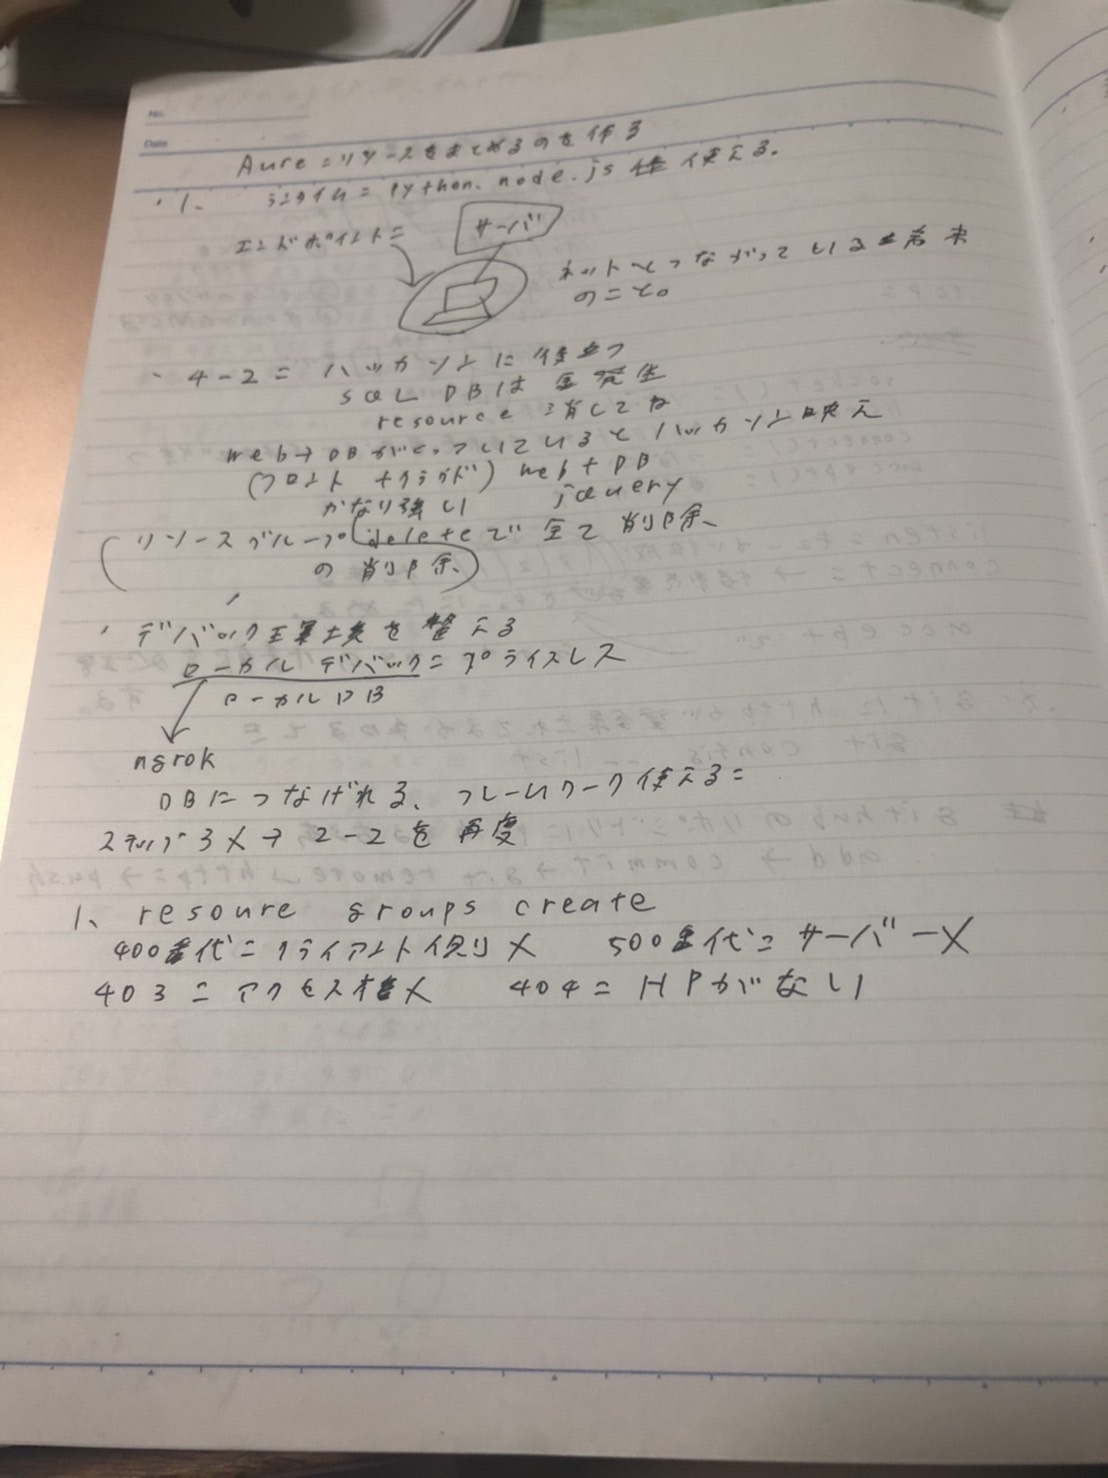 No.
Date
Aure=リソースをまとめるのを作る
・1、 ランタイム= python、node.js 使える。
エンドポイント=
サーバ
ネットとつながっている
のこと。
・4-2= ハッカソンに役立つ
SQL DBは 発生
resource 消してね
web→DBがくっついているとハッカソン映え
(フロント+クラウド) web+DB
かなり強い jquery
リソースグループ deleteで全て削除、
の削除、
・デバック環境を整える
ローカルデバック=プライスレス
ローカルDB
ngrok
DBにつなげれる、フレームワーク使える=
ステップ3 X→2-2を再度
1、resoure groups create
400番代=クライアント側 X 500番代=サーバーX
403=アクセス権X 404=HPがない